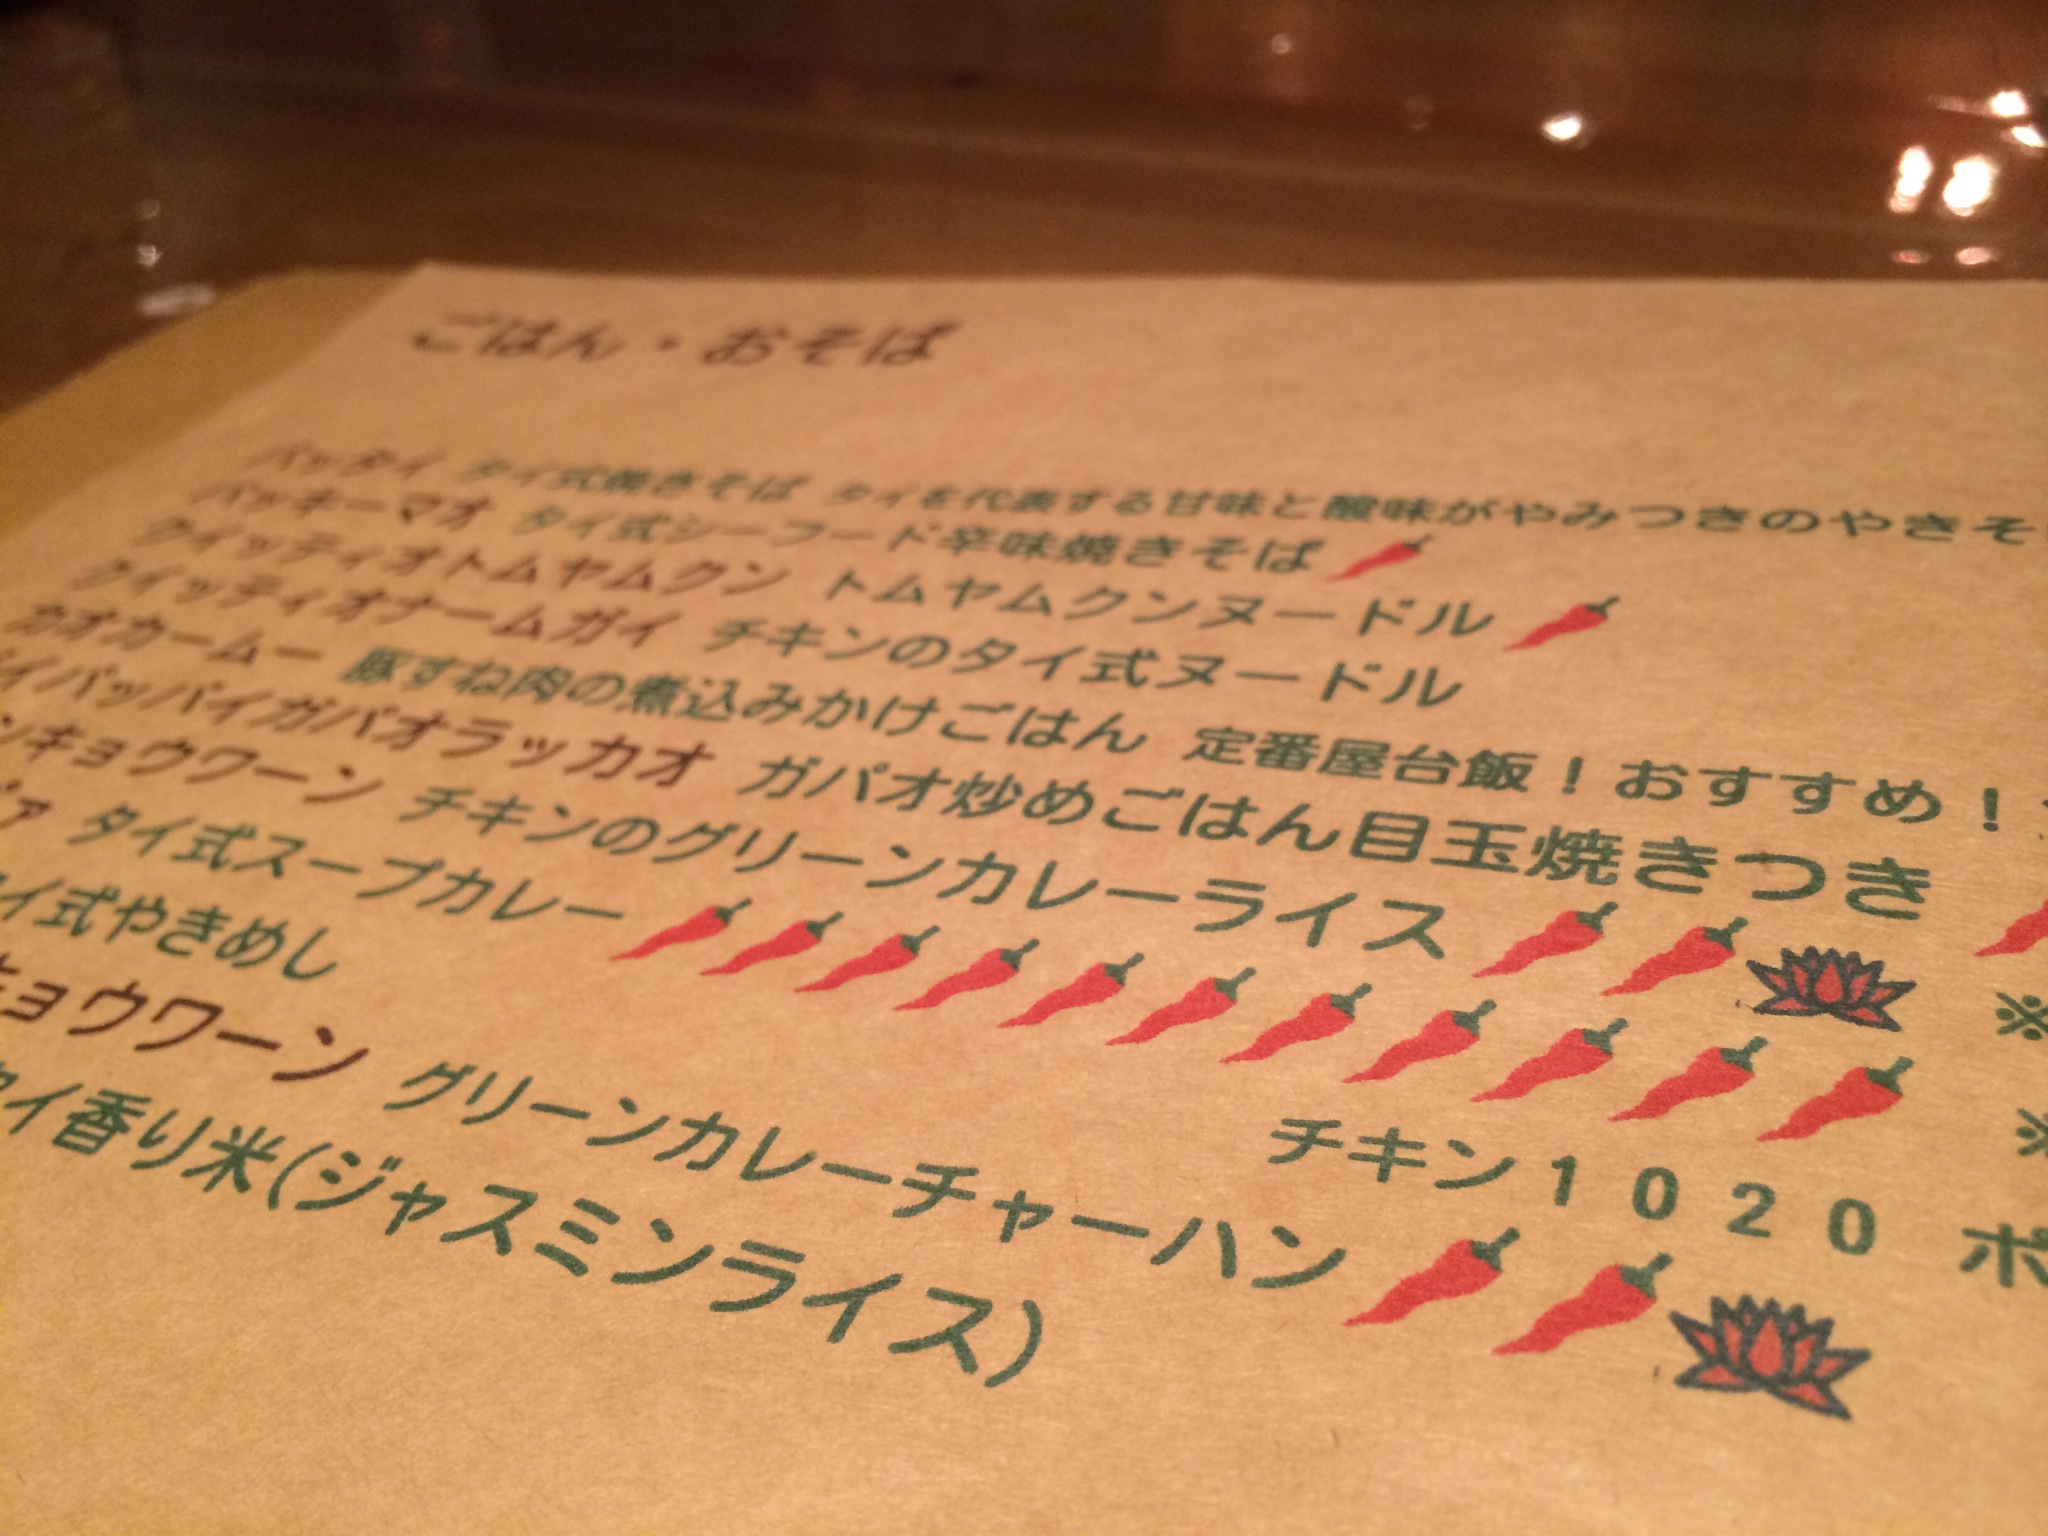 ごはん・おそば
パッタイ タイ式焼きそば タイを代表する甘味と酸味がやみつきのやきそ
パッキーマオ タイ式シーフード辛味焼きそば
クイッティオトムヤムクン トムヤムクンヌードル
クイッティオナームガイ チキンのタイ式ヌードル
カオカームー 豚すね肉の煮込みかけごはん 定番屋台飯!おすすめ!
イバッバイガパオラッカオ ガパオ炒めごはん目玉焼きつき
ンキョウワーン チキンのグリーンカレーライス ※
ァ タイ式スープカレー ※
イ式やきめし チキン1020 ポ
キョウワーン グリーンカレーチャーハン
タイ香り米(ジャスミンライス)